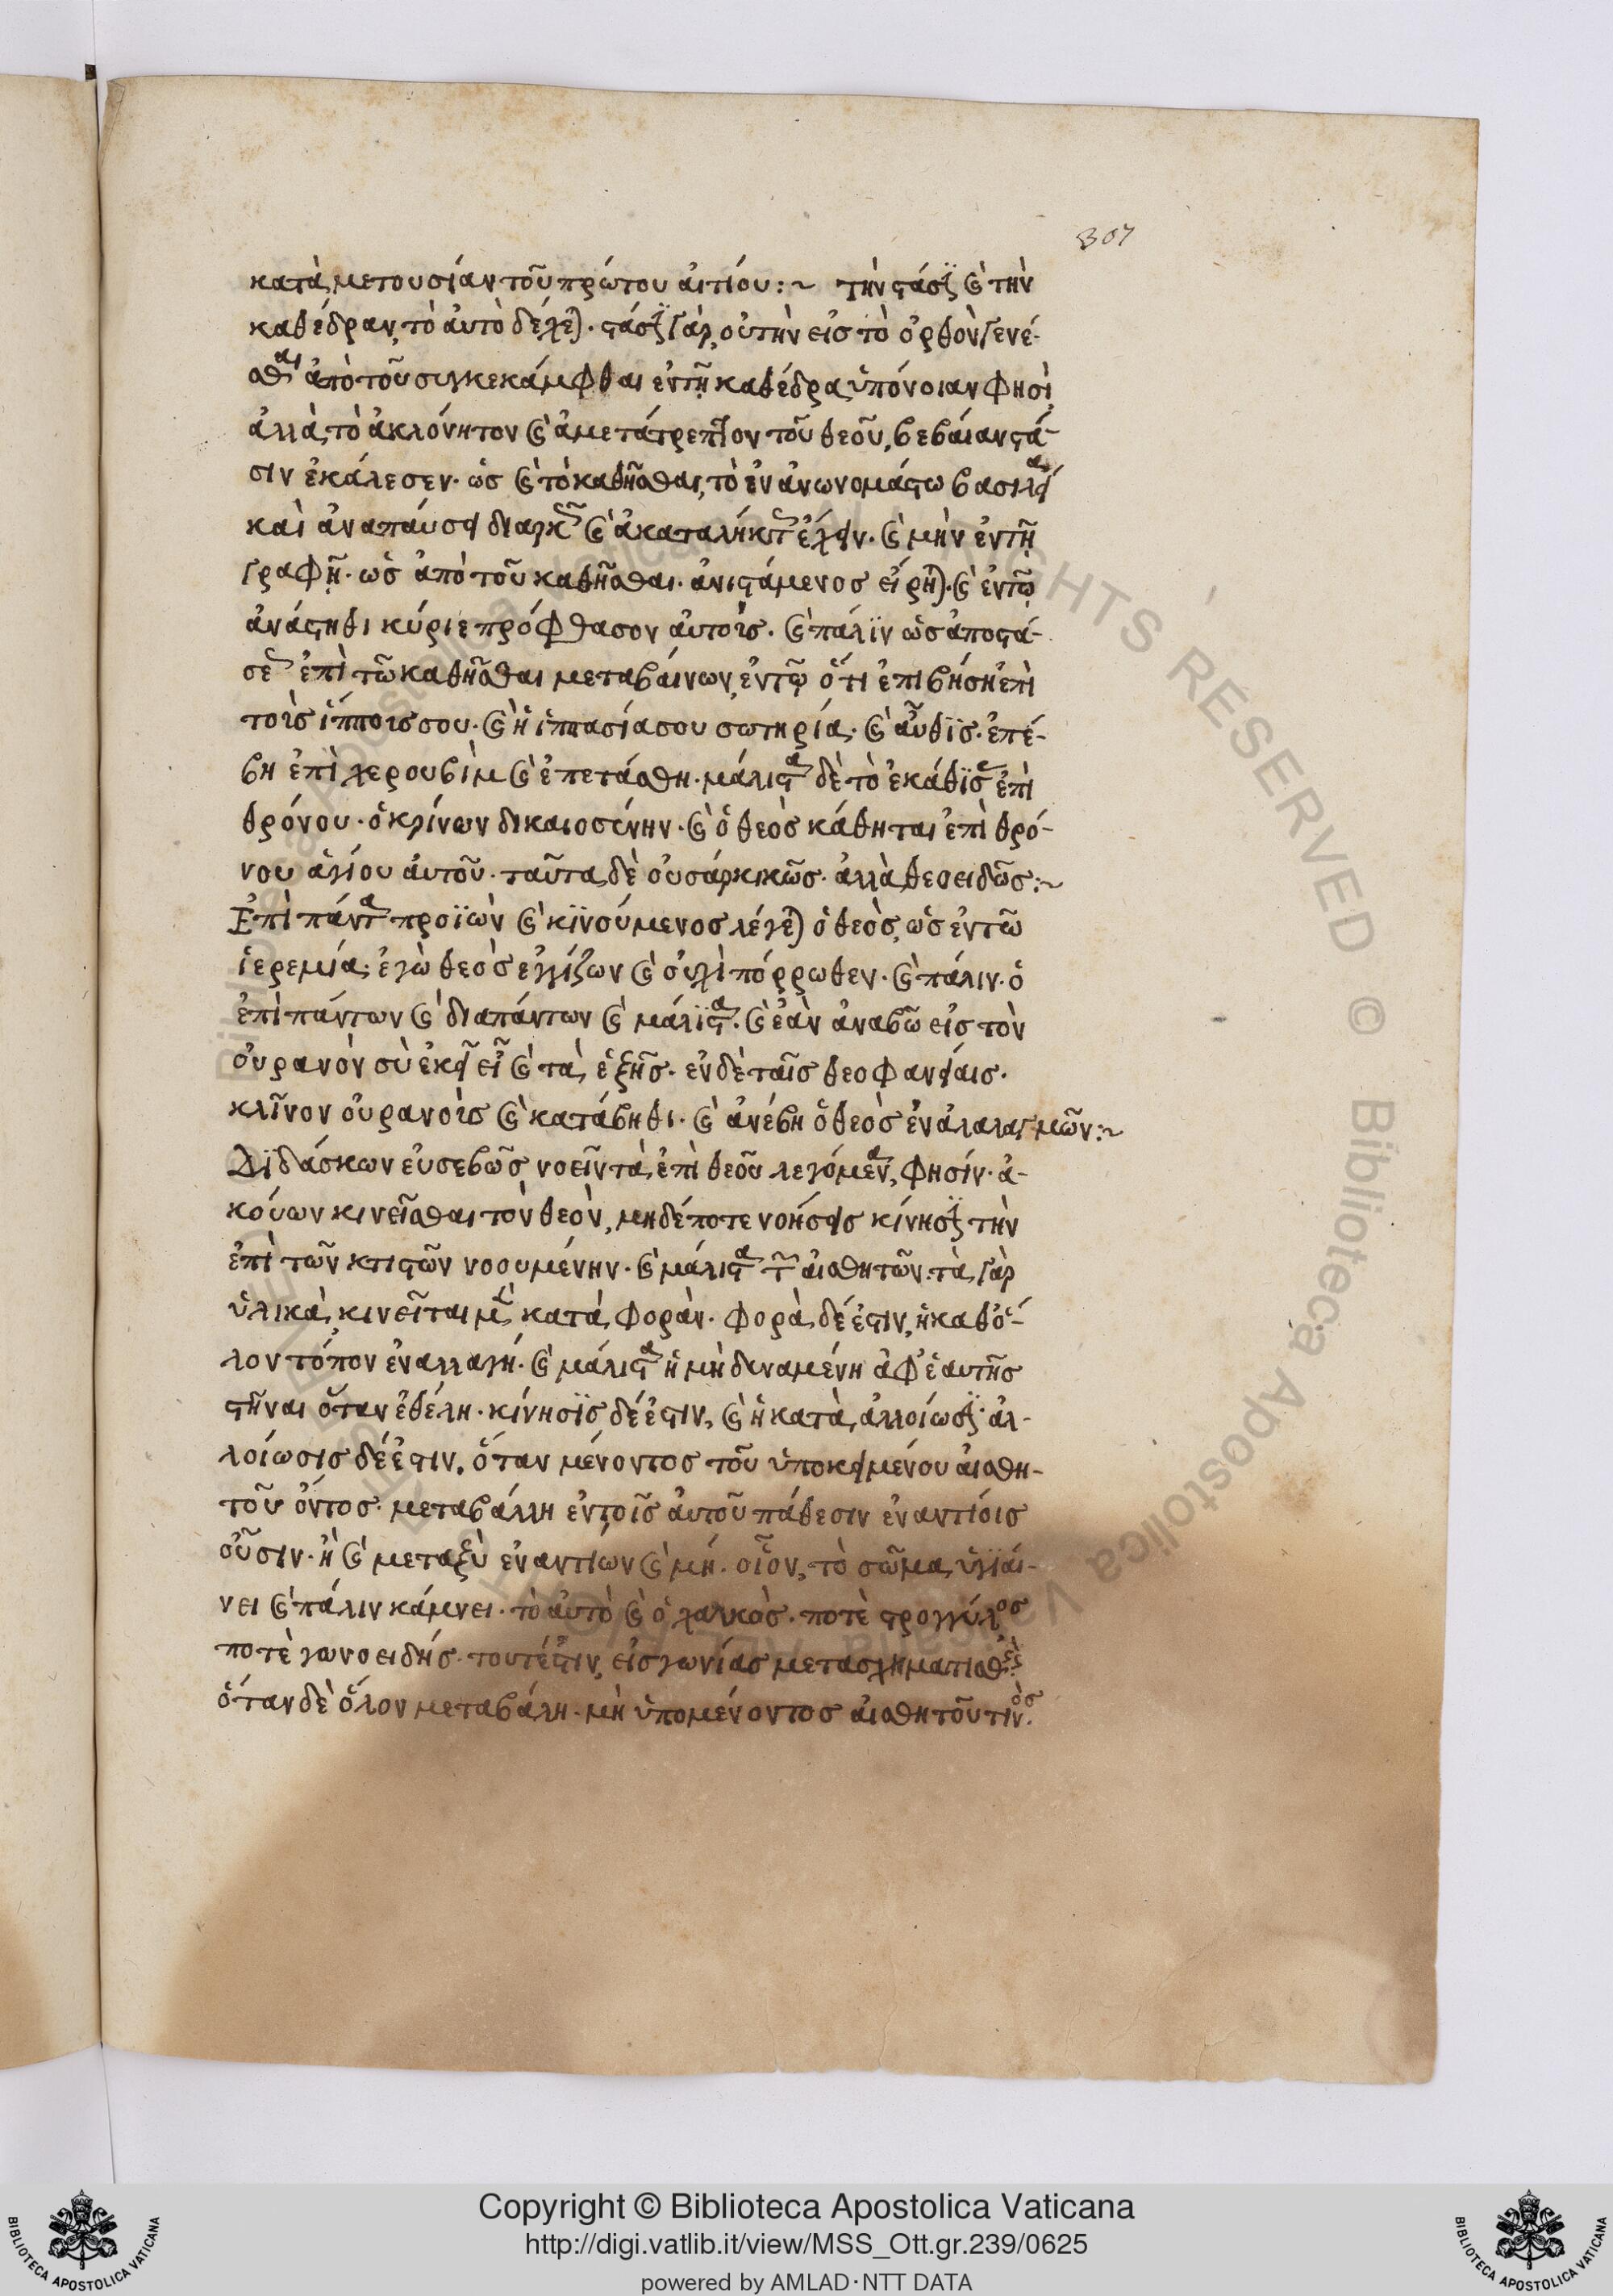 307
κατὰ μετουσίαν τοῦ πρώτου αἰτίου:~ τὴν στάσιν καὶ τὴν
καθέδραν, τὸ αὐτὸ δέχεται· στάσιν γὰρ, οὐ τὴν εἰς τὸ ὀρθὸν γενέ-
σθαι ἀπὸ τοῦ συγκεκάμφθαι ἐν τῇ καθέδρα ὑπόνοιαν φησὶ,
ἀλλὰ τὸ ἀκλόνητον καὶ ἀμετάτρεπτον τοῦ θεοῦ, βεβαίαν στά-
σιν ἐκάλεσεν· ὡς καὶ τὸ καθῆσθαι, τὸ ἐν ἀνωνομάστω βασιλεία
καὶ ἀναπαύσει διαρκῆ καὶ ἀκατάληκτον ἔχειν· καὶ μὴν ἐν τῇ
γραφῇ· ὡς ἀπὸ τοῦ καθῆσθαι· ἀνιστάμενος εἴρηται· καὶ ἐν τῷ
ἀνάστηθι κύριε πρόφθασον αὐτοὺς· καὶ πάλιν ὡς ἀπὸ στά-
σεως ἐπὶ τῶ καθῆσθαι μεταβαίνων, ἐν τῷ ὅτι ἐπιβήση ἐπὶ
τοὺς ἵππους σου· καὶ ἡ ἱππασία σου σωτηρία· καὶ αὖθις· ἐπέ-
βη ἐπὶ χερουβὶμ καὶ ἐπετάσθη· μάλιστα δὲ τὸ ἐκάθισεν ἐπὶ
θρόνου· ὁ κρίνων δικαιοσύνην· καὶ ὁ θεὸς κάθηται ἐπὶ θρό-
νου ἁγίου αὐτοῦ· ταῦτα δὲ οὐ σαρκικῶς· ἀλλὰ θεοειδῶς:~
Ἐπὶ πάντα προϊὼν καὶ κινούμενος λέγεται ὁ θεὸς, ὡς ἐν τῶ
ἱερεμία· ἐγὼ θεὸς ἐγγίζων καὶ οὐχὶ πόρρωθεν· καὶ πάλιν· ὁ
ἐπὶ πάντων καὶ διαπάντων καὶ μάλιστα· καὶ ἐὰν ἀναβῶ εἰς τὸν
οὐρανὸν σὺ ἐκεῖ εἶ καὶ τὰ ἑξῆς· ἐν δὲ ταῖς θεοφανείαις·
κλῖνον οὐρανοὺς καὶ κατάβηθι· καὶ ἀνέβη ὁ θεὸς ἐν ἀλαλαγμῶν:~
Διδάσκων εὐσεβῶς νοεῖν τὰ ἐπὶ θεοῦ λεγόμενα, φησίν· ἀ-
κούων κινεῖσθαι τὸν θεὸν, μηδέποτε νοήσεις κίνησιν τὴν
ἐπὶ τῶν κτιστῶν νοουμένην· καὶ μάλιστα τῶν αἰσθητῶν· τὰ γὰρ
ὑλικὰ, κινεῖται μὲν κατὰ φορὰν· φορὰ δέ ἐστιν, ἡ καθό-
λον τόπον ἐναλλαγή· καὶ μάλιστα ἡ μὴ δυναμένη ἀφ' ἑαυτῆς
στῆναι ὅταν ἐθέλη· κίνησις δέ ἐστιν, καὶ ἡ κατὰ ἀλλοίωσιν· ἀλ-
λοίωσις δέ ἐστιν, ὅταν μένοντος τοῦ ὑποκειμένου αἰσθη-
τοῦ ὄντος· μεταβάλλη ἐν τοῖς αὐτοῦ πάθεσιν ἐναντίοις
οὖσιν· ἢ καὶ μεταξὺ ἐναντίων καὶ μή· οἷον, τὸ σῶμα ὑγιαί-
νει καὶ πάλιν κάμνει· τὸ αὐτὸ καὶ ὁ χαλκὸς· ποτὲ στρογγύλος
ποτὲ γωνοειδής· τουτέστιν, εἰς γωνίας μετασχηματισθεὶς
ὅταν δὲ ὅλον μεταβάλη· μὴ ὑπομένοντος αἰσθητοῦ τινὸς·
ALL RIGHTS RESERVED © Biblioteca Apostolica Vaticana
Copyright © Biblioteca Apostolica Vaticana
http://digi.vatlib.it/view/MSS_Ott.gr.239/0625
powered by AMLAD·NTT DATA
BIBLIOTECA APOSTOLICA VATICANA
BIBLIOTECA APOSTOLICA VATICANA